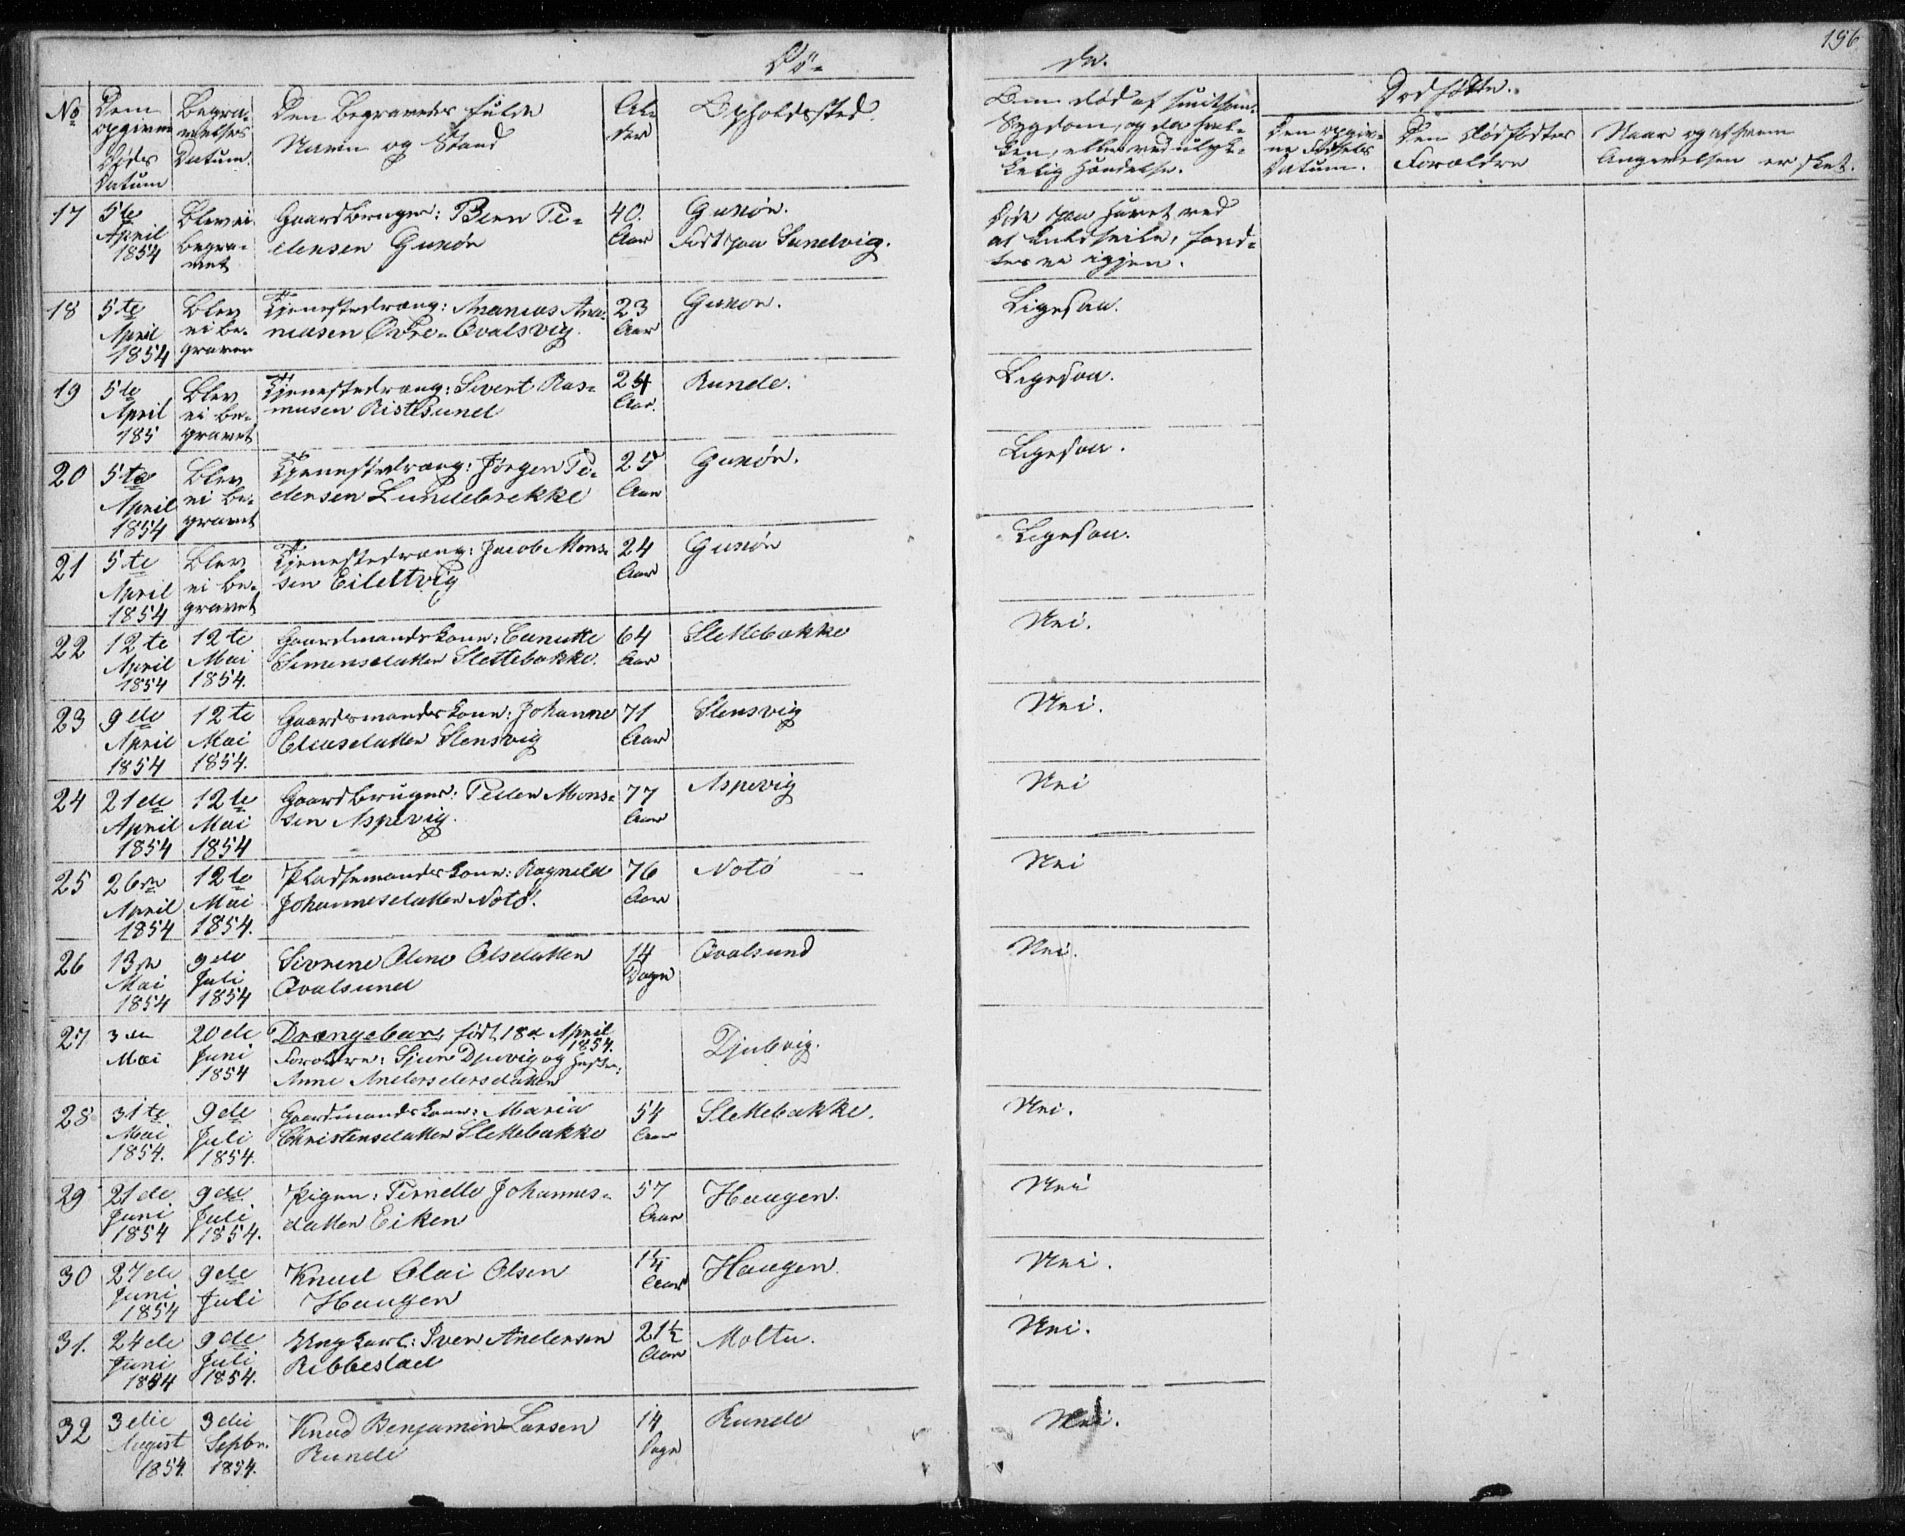 156
Dö-
de.
No
Dem
opgivne
Døds
Datum
Begra-
velses
Datum.
Den Begravedes fulde
Navn og Stand
Al-
der
Opholdssted.
Om død af smitsom
Sygdom, og da hvil-
ken, eller ved ulyk-
kelig Hændelse.
Dødfødte.
Den opgiv-
ne Fødsels
Datum.
Den Dødfødtes
Forældre
Naar og af hvem
Angivelsen er sket.
17
5te
April
1854
Blev ei
begra-
vet
Gaardbruger: Bern Pe-
dersen Gurøn
40.
Aar
Gurøn.
Født paa Sandvig.
Døde paa Havet ved
at kuldseile, fand-
tes ei igjen.
18
5te
April
1854
Blev
ei be-
graven
Tjenestedræng: Ananias Ana-
niasen Øvre-Qvalsvig.
23
Aar
Gurøn.
Ligesaa.
19
5te
April
185
Blev
ei be-
gravet
Tjenestedræng: Sivert Ras-
musen Ristesund
24
Aar.
Runde.
Ligesaa.
20
5te
April
1854
Blev
ei be-
gravet
Tjenestedræng: Jørgen Pe-
dersen Lundebrekke
25
Aar
Gurøn.
Ligesaa.
21
5te
April
1854
Blev
ei be-
gravet
Tjenestedræng: Jacob Mons-
sen Eiletvig
24
Aar
Gurøn
Ligesaa.
22
12te
April
1854
12te
Mai
1854.
Gaardmandskone: Canutte
Simensdatter Slettebakke.
64
Aar
Slettebakke
Nei.
23
9de
April
1854
12te
Mai
1854.
Gaardmandskone: Johanne
Eliasdatter Stensvig
71
Aar
Stensvig
Nei.
24
21de
April
1854
12te
Mai
1854
Gaardbruger: Peder Mons-
sen Aspevig.
77
Aar
Aspevig
Nei
25
26de
April
1854
12te
Mai
1854.
Pladsemandskone: Ragnild
Johannesdatter Notø.
76
Aar
Notø
Nei
26
13de
Mai
1854
9de
Juli
1854
Sivrine Oline Olsdatter
Qvalsund
14
Dage
Qvalsund
Nei.
27
3de
Mai
20de
Juni
1854
Drængebarn, født 18de April
1854.
Forældre: Sjur Djuvig og Hustru:
Anne Andersdersdatter
Djubvig.
28
31te
Mai
1854.
9de
Juli
1854.
Gaardmandskone: Maria
Christensdatter Slettebakke
54
Aar
Slettebakke.
Nei.
29
21de
Juni
1854
9de
Juli
1854.
Pigen: Pernelle Johannes-
datter Eiken
57
Aar
Haugen.
Nei
30
27de
Juni
1854
9de
Juli
Knud Olai Olsen
Haugen
1¼
Aar
Haugen.
Nei.
31.
24de
Juni
1854
9de
Juli
1854.
Ungkarl: Iver Andersen
Ribbestad
21½
Aar
Moltu.
Nei.
32
3die
August
1854.
3die
Septbr.
1854.
Knud Benjamin Larsen
Runde
14
Dage
Runde
Nei.